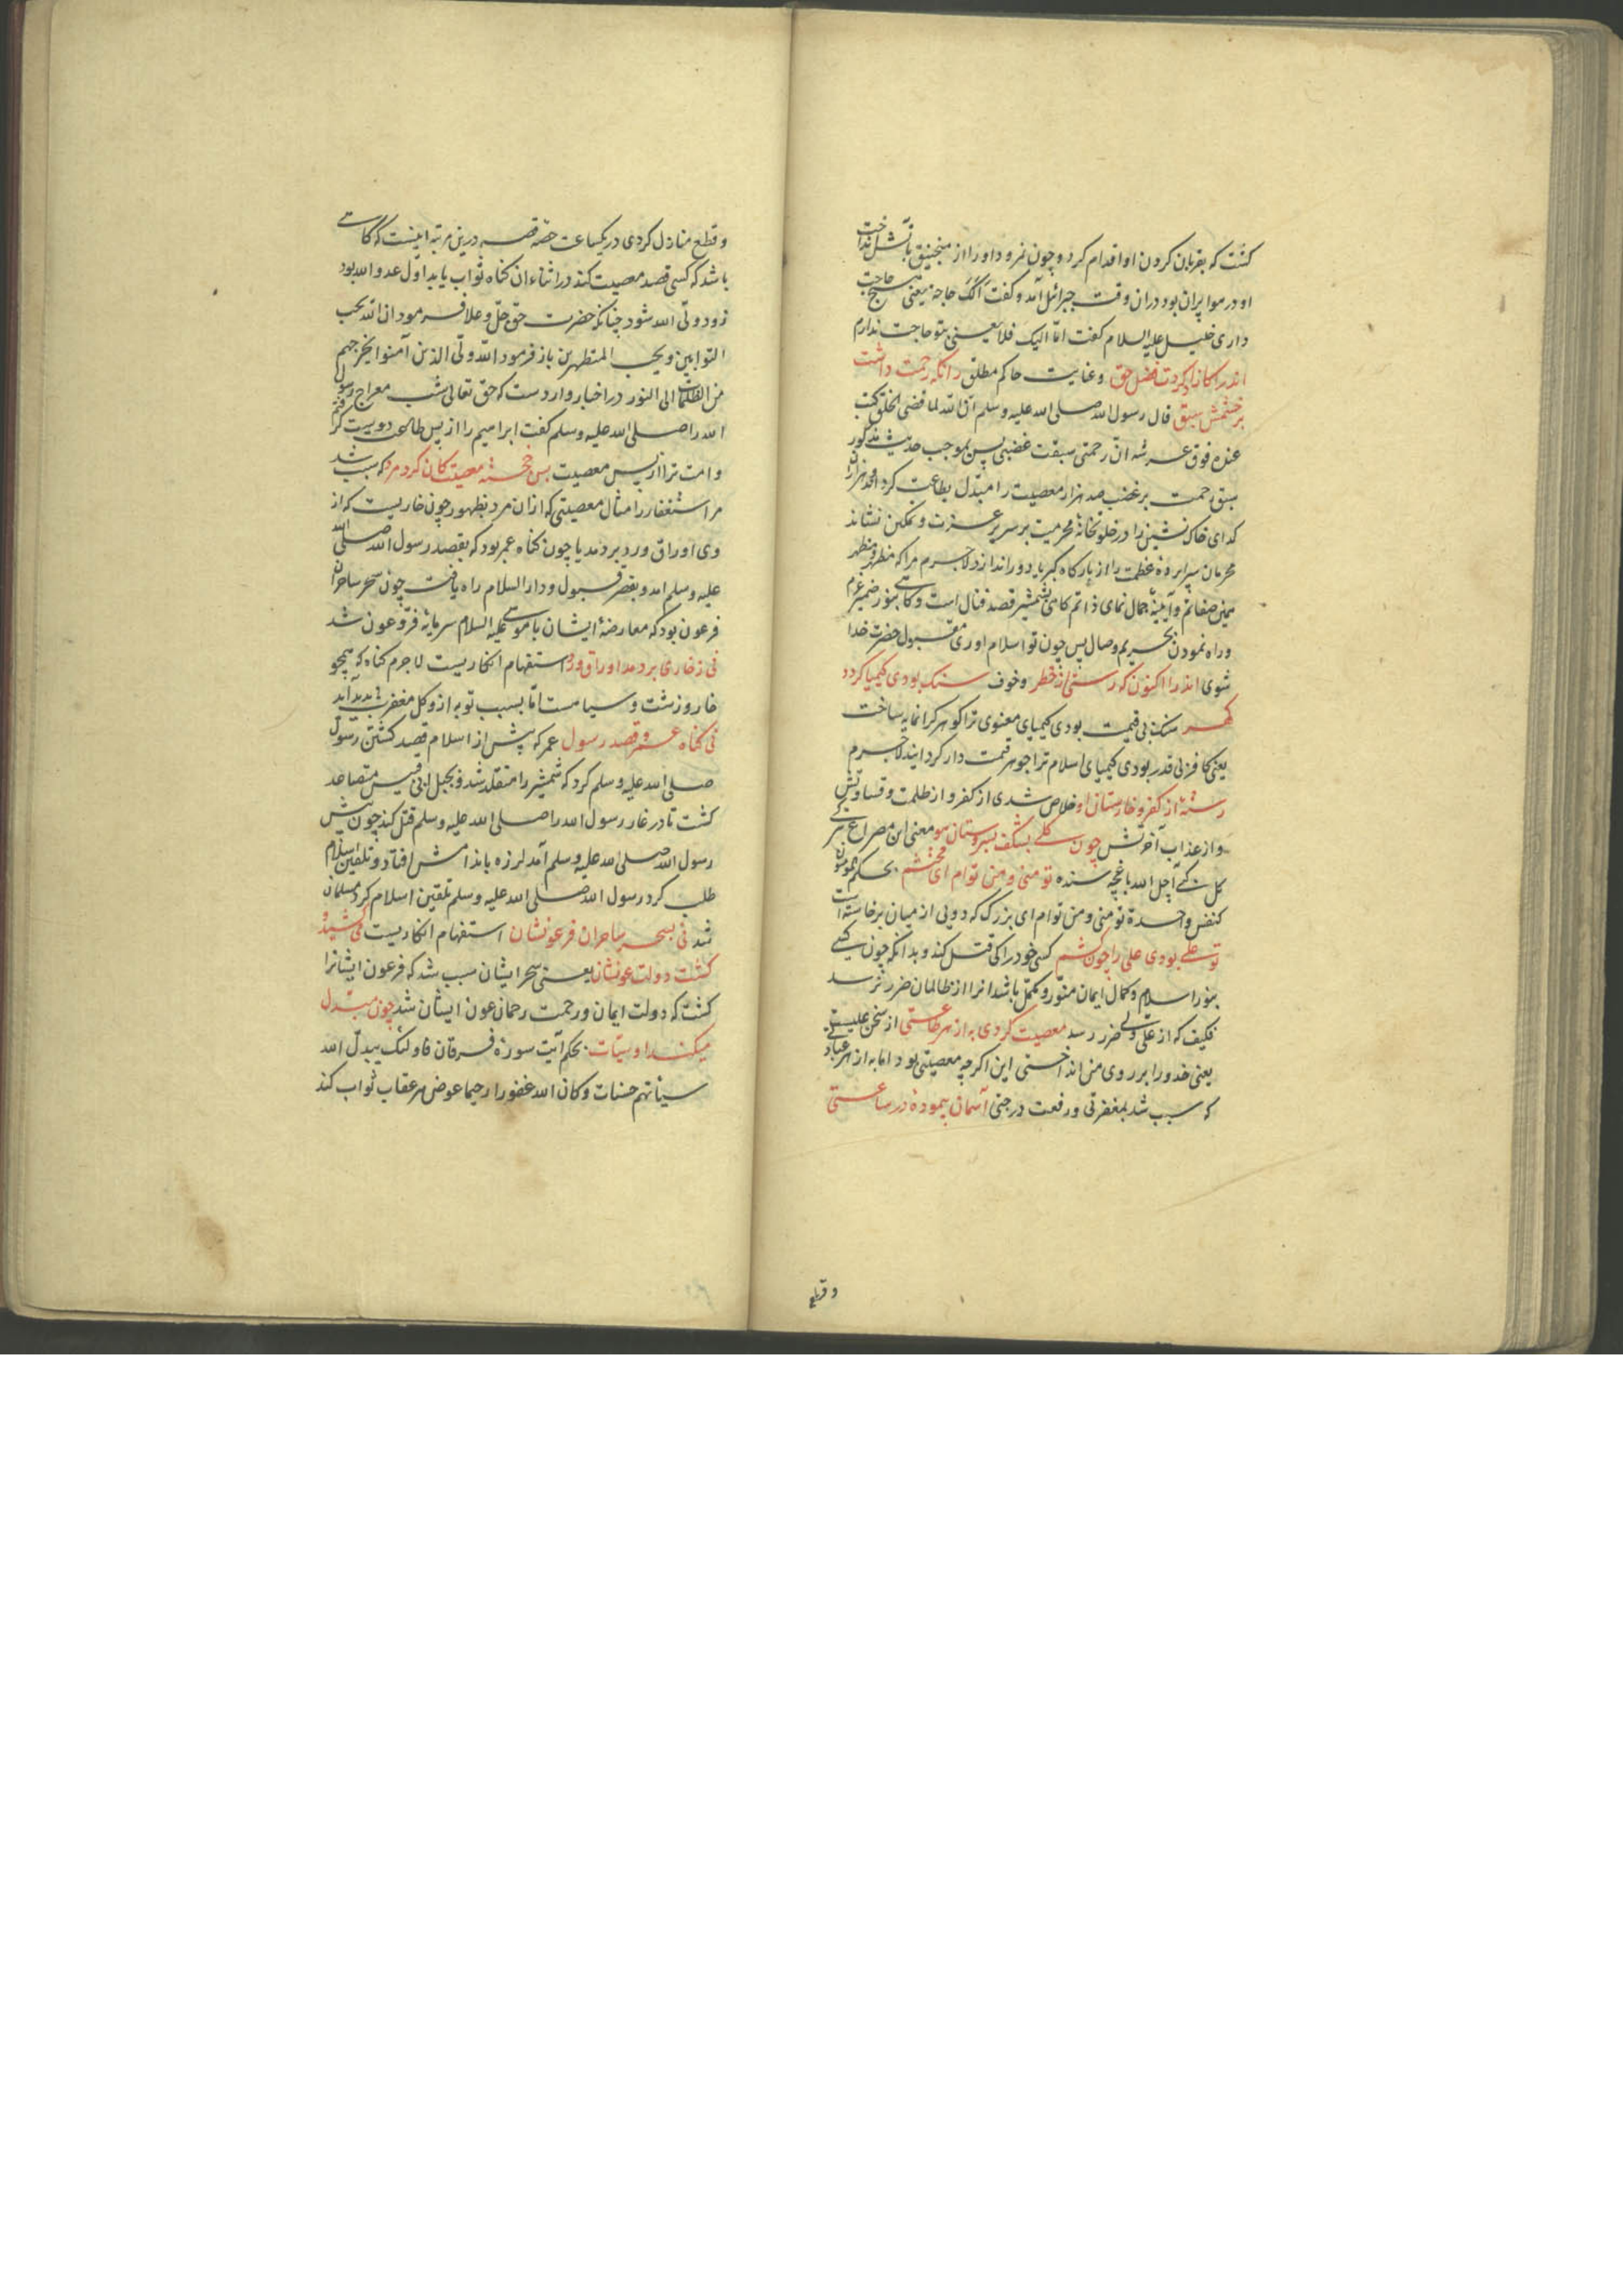 کشت که بقربان کردن او اقدام کرد و چون نمرود او را از منجنیق بآتش انداخت
او در هوا پران بود دران وقت جبرائیل آمد و گفت أَلَکَ حاجة یعنی هیچ حاجت
داری خلیل علیه السلام گفت امّا الیک فلا یعنی بتو حاجت ندارم
اندر آ کازاد کردت فضل حق وعنایت حاکم مطلق زانکه رحمت داشت
بر خشمش سبق قال رسول الله صلی الله علیه وسلم انّ الله لما قضی الخلق کتب
عنده فوق عرشه انّ رحمتی سبقت غضبی پس بموجب حدیث مذکور
سبق رحمت بر غضب صد هزار معصیت را مبتدل بطاعت کرد و صد هزاران
کدای خاک نشین را در خلوتخانهٔ محرمیت بر سریر عزت و تمکین نشاند
محرمان سراپردهٔ عظمت را از بارکاه کبریا دور اندازد لاجرم مرا که منظر و مظهر
صفاتم و آیینهٔ جمال نمای ذاتم کاهی بشمشیر قصد قتال است و کاهی بنور ضمیر عزم
وراه نمودن بحریم وصال پس چون تو اسلام اوری مقبول حضرت خدا
شوی اندر آ اکنون که رستی از خطر وخوف سنک بودی کیمیا کردت
کهر سنک بی قیمت بودی کیمیای معنوی ترا کوهر کرانمایه ساخت
یعنی کافر بی قدر بودی کیمیای اسلام ترا جوهر قیمت دار کردانید لاجرم
رستهٔ از کفر و خارستان او خلاص شدی از کفر و از ظلمت وقساوتش
و از عذاب آخرتش چون کلی بشکف بسروستان هو معنی این مصراع
کل شدی اجل الله باغچه شده تو منی و من توام ای محتشم بحکم المؤمنون
کنفس واحدة تو منی و من توام ای بزرک که دویی از میان برخاسته است
تو علی بودی علی را چون کشم کسی خود را کی قتل کند و بدانکه چون کسی
بنور اسلام و کمال ایمان منوّر و مکمّل باشد انرا از ظالمان ضرر نرسد
فکیف که از علی ولی ضرر رسد معصیت کردی به از هر طاعتی از سخن علیست
یعنی خدو را بر روی من انداختی این اکرچه معصیتی بود اما به از هر عبادتی
که سبب شد بمغفرتی و رفعت درجتی آسمان پیمودهٔ در ساعتی
و قطع
و قطع منازل کردی در یکساعت حصّهٔ قصه درین مرتبه اینست که کاهی
باشد که کسی قصد معصیت کند در اثناء ان کناه ثواب یابد اوّل عدو الله بود
زود ولیّ الله شود چنانکه حضرت حق جلّ و علا فرمود ان الله یحب
التوابین و یحب المتطهرین باز فرمود الله ولیّ الذین آمنوا یخرجهم
من الظلمات الی النور در اخبار واردست که حق تعالی شب معراج رسول
الله را صلی الله علیه وسلم کفت ابراهیم را از پس طاعت دوست کرفتم
و امت ترا از پس معصیت بس خجسته معصیت کان کرد مرد که سبب شد
مر استغفار را مثال معصیتی که ازان مرد بظهور چون خاریست که از
وی اوراق ورد بردمد یا چون کناه عمر بود که بقصد رسول الله صلی الله
علیه وسلم امد و بقصر قبول و دار السلام راه یافت چون سحر ساحران
فرعون بود که معارضهٔ ایشان با موسی علیه السلام سرمایهٔ فرّ و عون شد
نی ز خاری بردمد اوراق ورد استفهام انکاریست لاجرم کناه که همچو
خار وزشت و سیا هست امّا بسبب توبه ازو کل مغفرت پدید آید
نی کناه عمر و قصد رسول عمر که پیش از اسلام قصد کشتن رسول
صلی الله علیه وسلم کرد که شمشیر را متقلد شد و بجبل ابی قبیس متصاعد
کشت تا در غار رسول الله را صلی الله علیه وسلم قتل کند چون پیش
رسول الله صلی الله علیه وسلم آمد لرزه باندامش افتاد و تلقین اسلام
طلب کرد رسول الله صلی الله علیه وسلم تلقین اسلام کرد مسلمان
شد نی بسحر ساحران فرعونشان استفهام انکاریست می کشید و
کشت دولت عونشان یعنی سحر ایشان سبب شد که فرعون ایشانرا
کشت که دولت ایمان و رحمت رحمان عون ایشان شد چون مبدل
میکند او سیّآت بحکم آیت سورهٔ فرقان فاولئک یبدّل الله
سیئاتهم حسنات وکان الله غفورا رحیما عوض هر عقاب ثواب کند